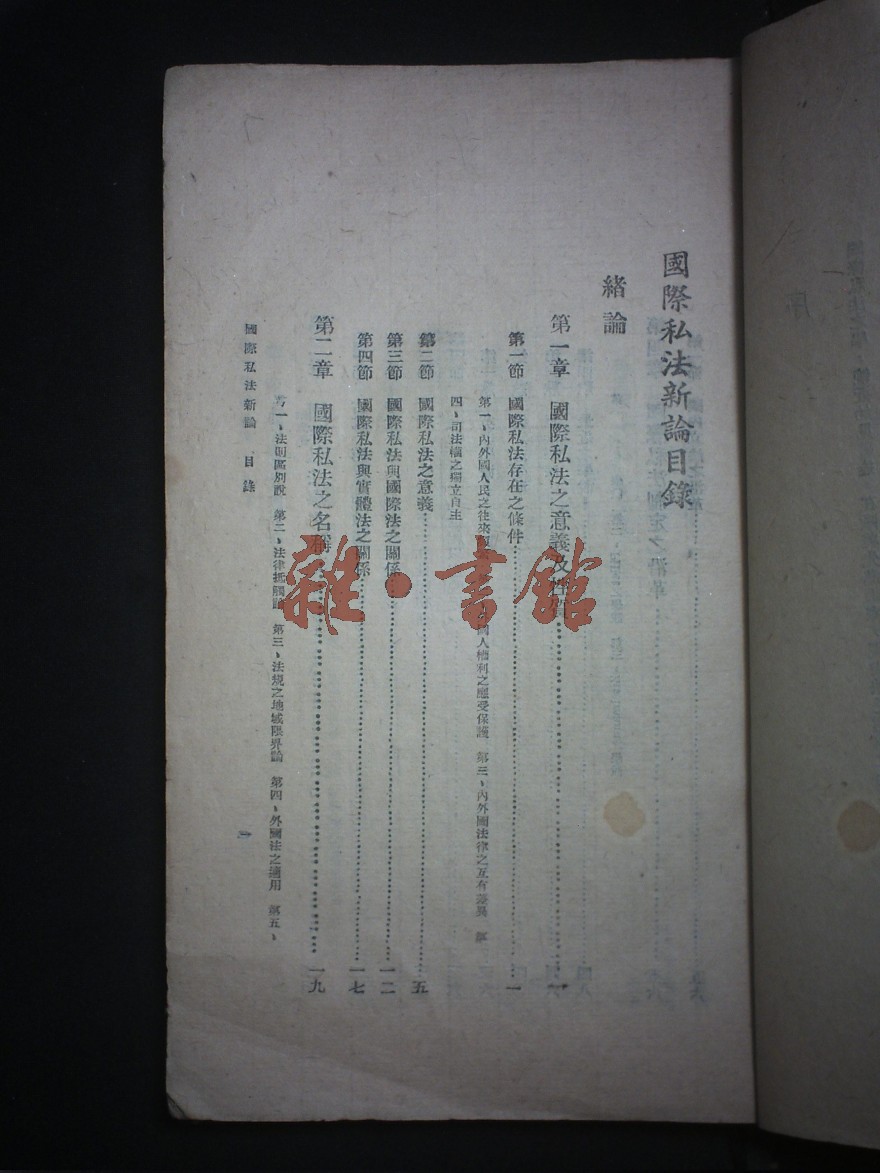 國際私法新論目錄
緒論
第一章 國際私法之意義及性質 一
第一節 國際私法存在之條件 一
第一、內外國人民之往來 國人權利之應受保護 第三、內外國法律之互有差異 第
四、司法權之獨立自主
第二節 國際私法之意義 五
第三節 國際私法與國際法之關係 一二
第四節 國際私法與實體法之關係 一七
第二章 國際私法之名稱 一九
第一、法則區別說 第二、法律抵觸論 第三、法規之地域限界論 第四、外國法之適用 第五、
國際私法新論 目錄
一
雜·書館